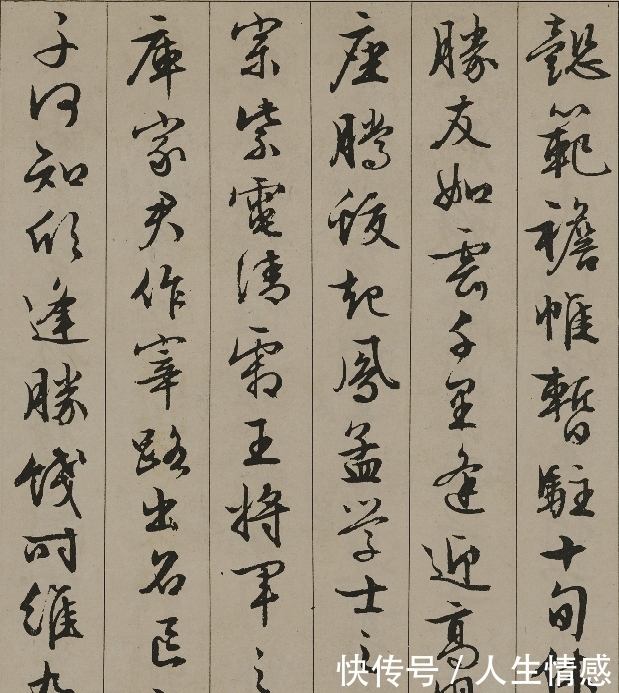 懿範襜帷暫駐十旬休
勝友如雲千里逢迎高朋
座騰蛟起鳳孟学士之
宗紫電清霜王將軍之
庫家君作宰路出名區
子何知躬逢勝餞时維九
快传号/人生情感